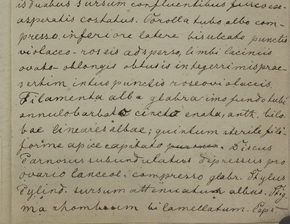 isduabus sursum confluentibus fusco ca-
asperatis costatus. Corolla tubo albo com-
presso, inferiore latere bisulcato punctis
violaceo-roseis adsperso, limbi laciniis
ovato-oblongis obtusis integerrimis prae-
sertim intus punctis roseoviolaceis.
Filamenta alba glabra imo fundo tubi
annulo barbato cincto enata, anth. bilo-
bae lineares albae; quintum sterile fili-
forme apice capitato Discus
carnosus subundulatus depressus pro
ovario lanceol. compresso glabr. Stylus
cylind. sursum attenuatus albus. Stig
ma rhombeum bilamellatum. Caps